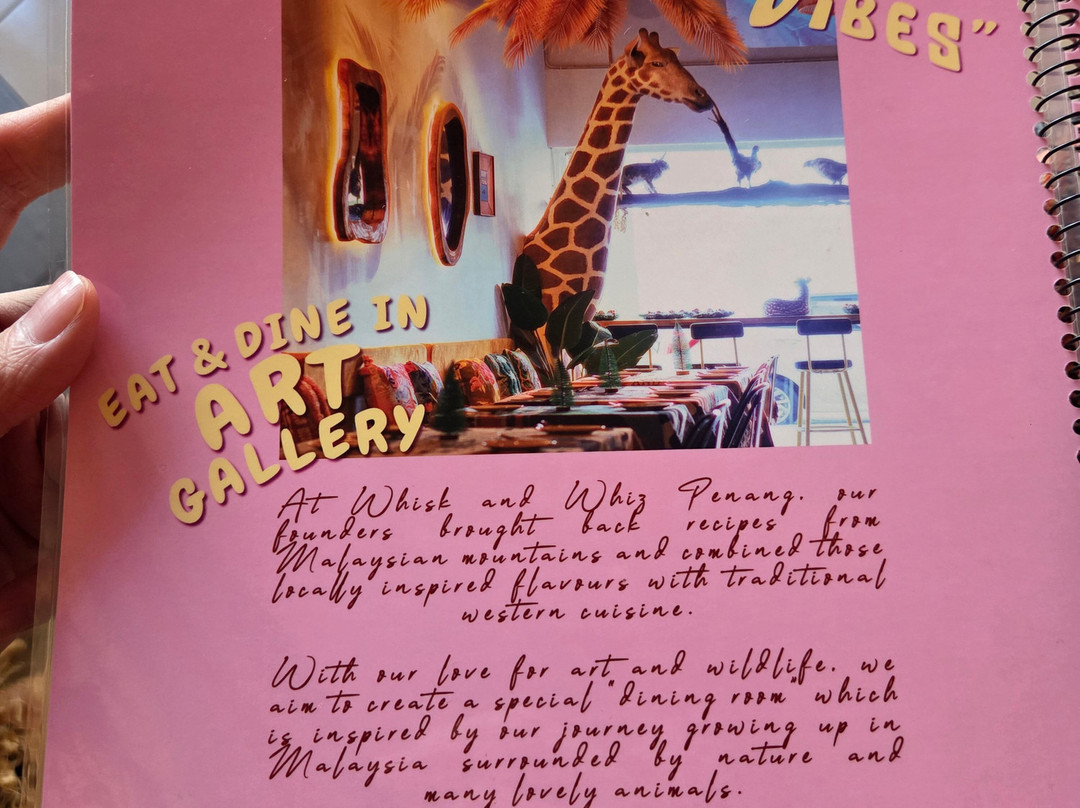 VIBES"
EAT & DINE IN
ART
GALLERY
At Whisk and Whiz Penang, our
founders brought back recipes from
Malaysian mountains and combined those
locally inspired flavours with traditional
western cuisine.
With our love for art and wildlife, we
aim to create a special "dining room" which
is inspired by our journey growing up in
Malaysia surrounded by nature and
many lovely animals.